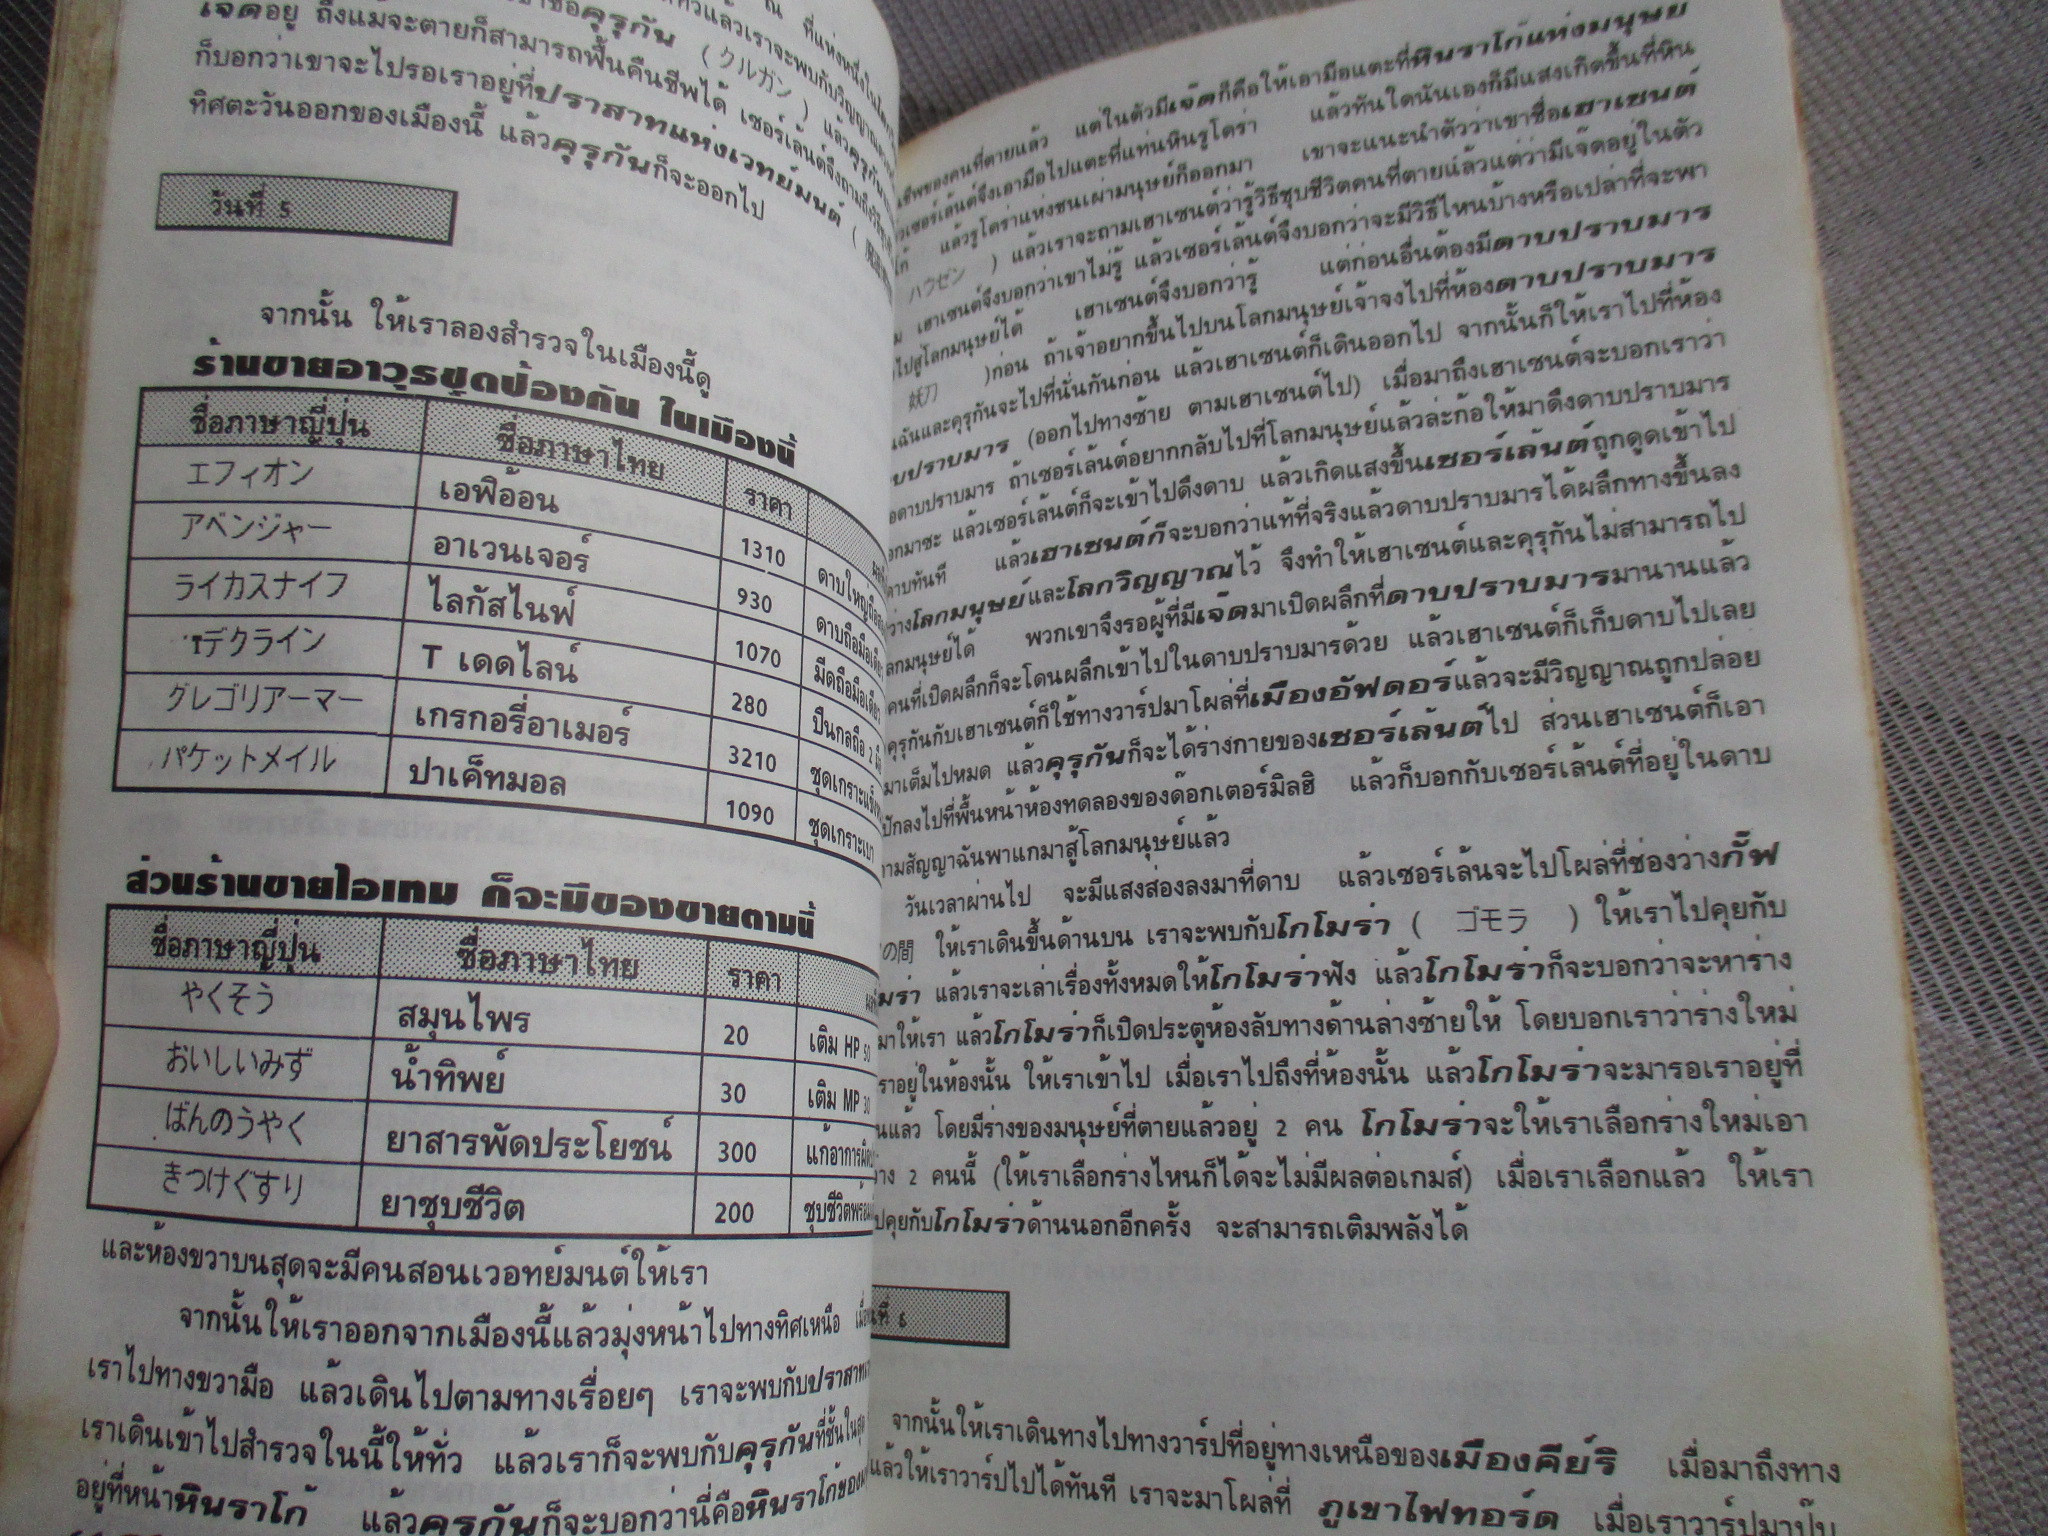 ณ ที่แห่งหนึ่งใน
แล้วเราจะพบกับวิญญาณ
ชื่อคุรุกัน (クルガン) แล้วคุรุกัน
เจ็ดอยู่ ถึงแม้จะตายก็สามารถฟื้นคืนชีพได้ เซอร์เล้นต์จึงถามถึงวิธี
ก็บอกว่าเขาจะไปรอเราอยู่ที่ปราสาทแห่งเวทย์มนต์ (
ทิศตะวันออกของเมืองนี้ แล้วคุรุกันก็จะออกไป
วันที่ 5
จากนั้น ให้เราลองสำรวจในเมืองนี้ดู
ร้านขายอาวุธชุดป้องกัน ในเมืองนี้
ชื่อภาษาญี่ปุ่น ชื่อภาษาไทย ราคา
エフィオン เอฟิ้ออน 1310 ดาบใหญ่ถือ
アベンジャー อาเวนเจอร์ 930 ดาบถือมือเดียว
ライカスナイフ ไลกัสไนฟ์ 1070 มีดถือมือเดียว
Tデクライン T เดดไลน์ 280 ปืนกลถือ 2 มือ
グレゴリアーマー เกรกอรี่อาเมอร์ 3210 ชุดเกราะแข็ง
パケットメイル ปาเค็ทมอล 1090 ชุดเกราะเบา
ส่วนร้านขายไอเทม ก็จะมีของขายตามนี้
ชื่อภาษาญี่ปุ่น ชื่อภาษาไทย ราคา
やくそう สมุนไพร 20 เติม HP 50
おいしいみず น้ำทิพย์ 30 เติม MP 30
ばんのうやく ยาสารพัดประโยชน์ 300 แก้อาการผิด
きつけぐすり ยาชุบชีวิต 200 ชุบชีวิตพร้อม
และห้องขวาบนสุดจะมีคนสอนเวอทย์มนต์ให้เรา
จากนั้นให้เราออกจากเมืองนี้แล้วมุ่งหน้าไปทางทิศเหนือ เมื่อ
เราไปทางขวามือ แล้วเดินไปตามทางเรื่อยๆ เราจะพบกับปราสาท
เราเดินเข้าไปสำรวจในนี้ให้ทั่ว แล้วเราก็จะพบกับคุรุกันที่ชั้นในสุด
อยู่ที่หน้าหินราโก้ แล้วคุรุกันก็จะบอกว่านี่คือหินราโก้ของ
ชีพของคนที่ตายแล้ว แต่ในตัวมีเจ็ดก็คือให้เอามือแตะที่หินราโก้แห่งมนุษย์
เซอร์เล้นต์จึงเอามือไปแตะที่แท่นหินรูโดร่า แล้วทันใดนั้นเองก็มีแสงเกิดขึ้นที่หิน
โก้ แล้วรูโดร่าแห่งชนเผ่ามนุษย์ก็ออกมา เขาจะแนะนำตัวว่าเขาชื่อเฮาเซนต์
ハウゼン ) แล้วเราจะถามเฮาเซนต์ว่ารู้วิธีชุบชีวิตคนที่ตายแล้วแต่ว่ามีเจ็ดอยู่ในตัว
เฮาเซนต์จึงบอกว่าเขาไม่รู้ แล้วเซอร์เล้นต์จึงบอกว่าจะมีวิธีไหนบ้างหรือเปล่าที่จะพา
ไปสู่โลกมนุษย์ได้ เฮาเซนต์จึงบอกว่ารู้ แต่ก่อนอื่นต้องมีดาบปราบมาร
妖刀 )ก่อน ถ้าเจ้าอยากขึ้นไปบนโลกมนุษย์เจ้าจงไปที่ห้องดาบปราบมาร
ฉันและคุรุกันจะไปที่นั่นกันก่อน แล้วเฮาเซนต์ก็เดินออกไป จากนั้นก็ให้เราไปที่ห้อง
บปราบมาร (ออกไปทางซ้าย ตามเฮาเซนต์ไป) เมื่อมาถึงเฮาเซนต์จะบอกเราว่า
ดาบปราบมาร ถ้าเซอร์เล้นต์อยากกลับไปที่โลกมนุษย์แล้วล่ะก้อให้มาดึงดาบปราบมาร
อกมาซะ แล้วเซอร์เล้นต์ก็จะเข้าไปดึงดาบ แล้วเกิดแสงขึ้นเซอร์เล้นต์ถูกดูดเข้าไป
ดาบทันที แล้วเฮาเซนต์ก็จะบอกว่าแท้ที่จริงแล้วดาบปราบมารได้ผลึกทางขึ้นลง
ว่างโลกมนุษย์และโลกวิญญาณไว้ จึงทำให้เฮาเซนต์และคุรุกันไม่สามารถไป
ลกมนุษย์ได้ พวกเขาจึงรอผู้ที่มีเจ็ดมาเปิดผลึกที่ดาบปราบมารมานานแล้ว
คนที่เปิดผลึกก็จะโดนผลึกเข้าไปในดาบปราบมารด้วย แล้วเฮาเซนต์ก็เก็บดาบไปเลย
คุรุกันกับเฮาเซนต์ก็ใช้ทางวาร์ปมาโผล่ที่เมืองอัฟดอร์แล้วจะมีวิญญาณถูกปล่อย
มาเต็มไปหมด แล้วคุรุกันก็จะได้ร่างกายของเซอร์เล้นต์ไป ส่วนเฮาเซนต์ก็เอา
ปักลงไปที่พื้นหน้าห้องทดลองของด๊อกเตอร์มิลฮิ แล้วก็บอกกับเซอร์เล้นต์ที่อยู่ในดาบ
ามสัญญาฉันพาแกมาสู้โลกมนุษย์แล้ว
วันเวลาผ่านไป จะมีแสงส่องลงมาที่ดาบ แล้วเซอร์เล้นจะไปโผล่ที่ช่องว่างกั๊ฟ
の間 ให้เราเดินขึ้นด้านบน เราจะพบกับโกโมร่า ( ゴモラ ) ให้เราไปคุยกับ
มร่า แล้วเราจะเล่าเรื่องทั้งหมดให้โกโมร่าฟัง แล้วโกโมร่าก็จะบอกว่าจะหาร่าง
มาให้เรา แล้วโกโมร่าก็เปิดประตูห้องลับทางด้านล่างซ้ายให้ โดยบอกเราว่าร่างใหม่
ราอยู่ในห้องนั้น ให้เราเข้าไป เมื่อเราไปถึงที่ห้องนั้น แล้วโกโมร่าจะมารอเราอยู่ที่
นแล้ว โดยมีร่างของมนุษย์ที่ตายแล้วอยู่ 2 คน โกโมร่าจะให้เราเลือกร่างใหม่เอา
าง 2 คนนี้ (ให้เราเลือกร่างไหนก็ได้จะไม่มีผลต่อเกมส์) เมื่อเราเลือกแล้ว ให้เรา
ปคุยกับโกโมร่าด้านนอกอีกครั้ง จะสามารถเติมพลังได้
นที่ 6
จากนั้นให้เราเดินทางไปทางวาร์ปที่อยู่ทางเหนือของเมืองคีย์ริ เมื่อมาถึงทาง
แล้วให้เราวาร์ปไปได้ทันที เราจะมาโผล่ที่ ภูเขาไฟทอร์ด เมื่อเราวาร์ปมาปุ๊บ